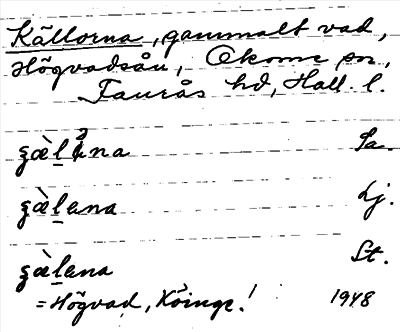 Källorna, gammalt vad,
Högvadsån, Okome sn.,
Faurås hd, Hall. l.
ʒæ̀l̠ena Sa.
ʒæ̀l̠ena Lj.
ʒæ̀l̠ena St.
= Högvad, Köinge! 1948